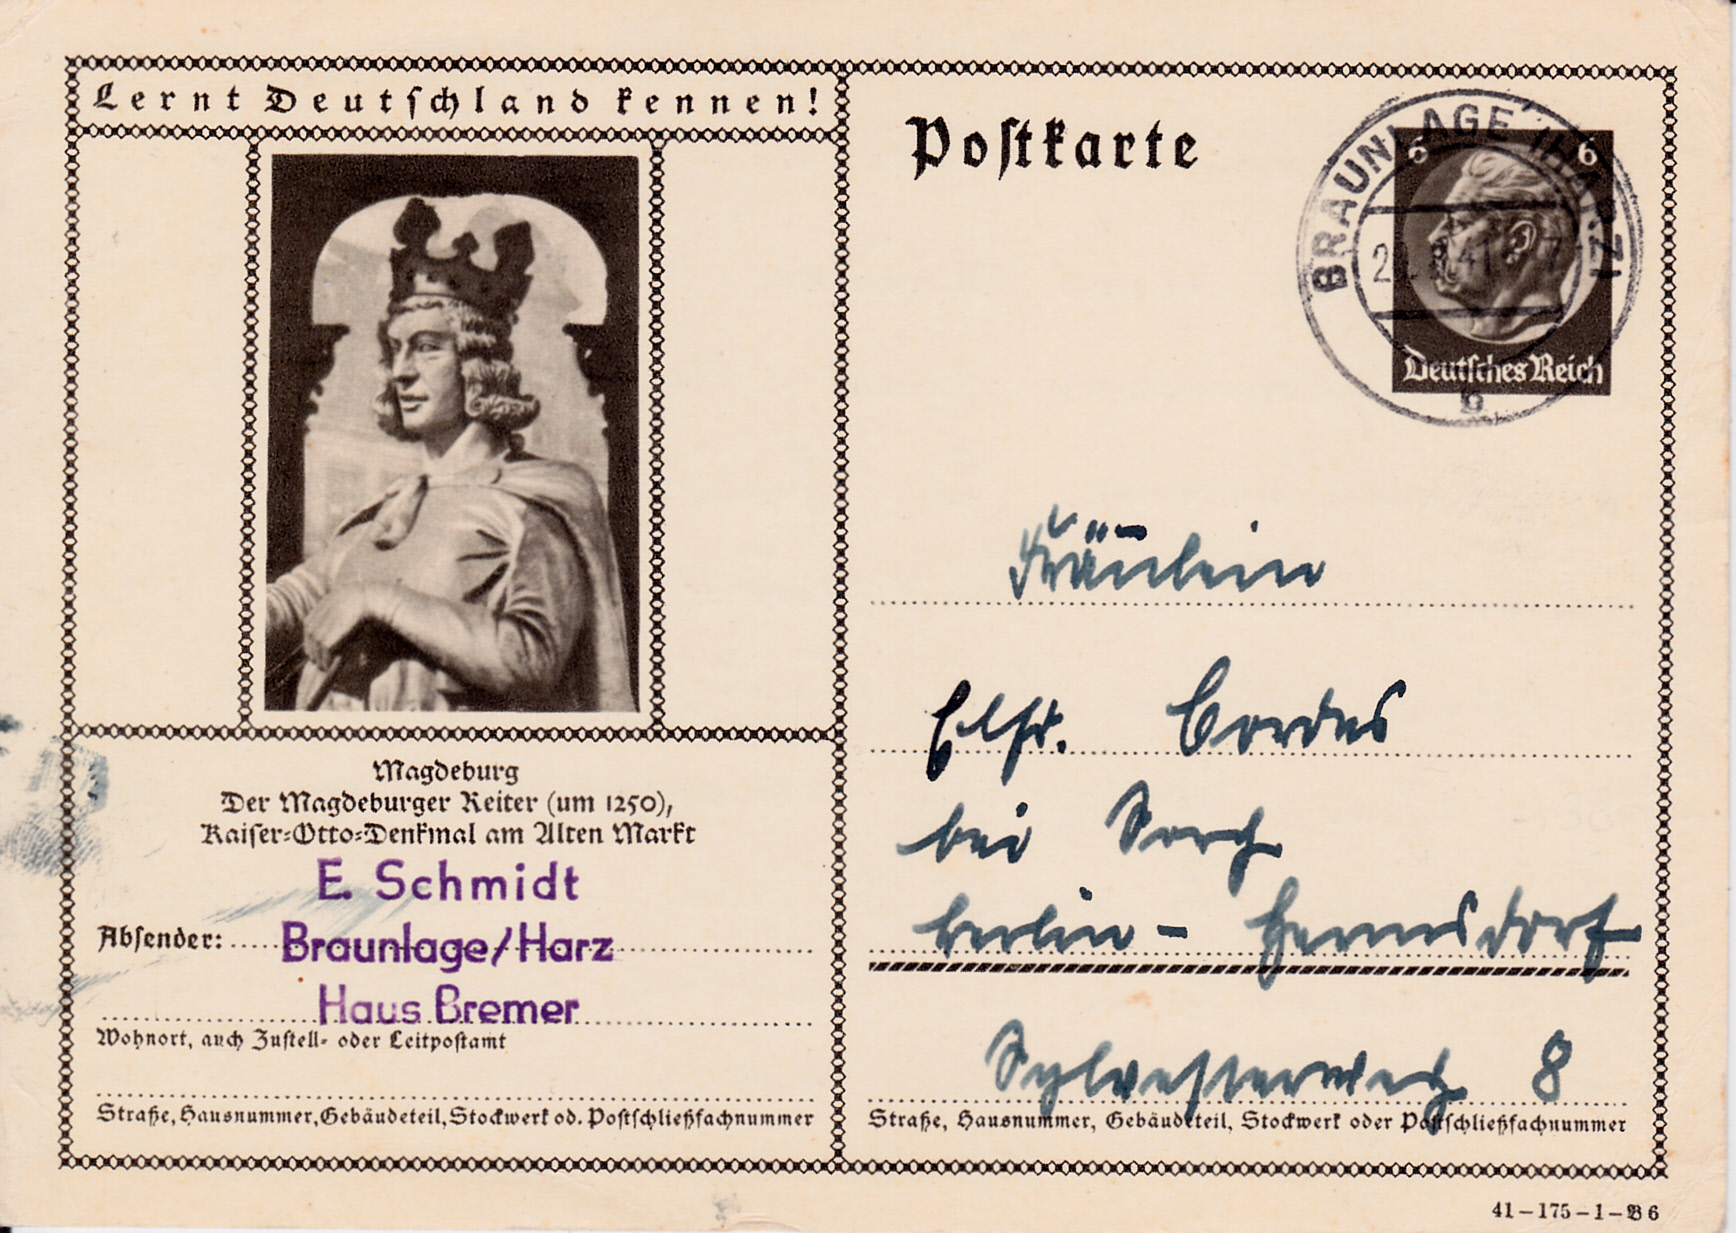 Lernt Deutschland kennen!
Postkarte
BRAUNLAGE (HARZ)
6 6
Deutsches Reich
b
Magdeburg
Der Magdeburger Reiter (um 1250),
Kaiser-Otto-Denkmal am Alten Markt
E. Schmidt
Absender: Braunlage/Harz
Haus Bremer
Wohnort, auch Zustell- oder Leitpostamt
Straße, Hausnummer, Gebäudeteil, Stockwerk od. Postschließfachnummer
Fräulein
Elfr. Cordes
bei Sorg
Berlin - Hermsdorf
Sylvesterweg 8
Straße, Hausnummer, Gebäudeteil, Stockwerk oder Postschließfachnummer
41-175-1-B6